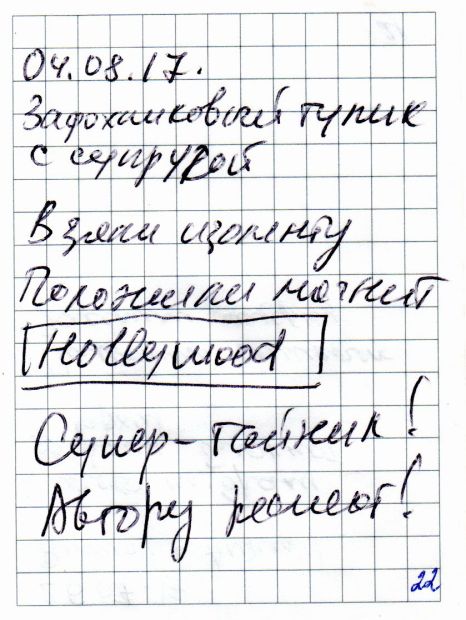 04.08.17.
тупик
с супругой
Взяли изоленту
Положили магнит
Hollywood
Супер-тайник!
Автору респект!
22